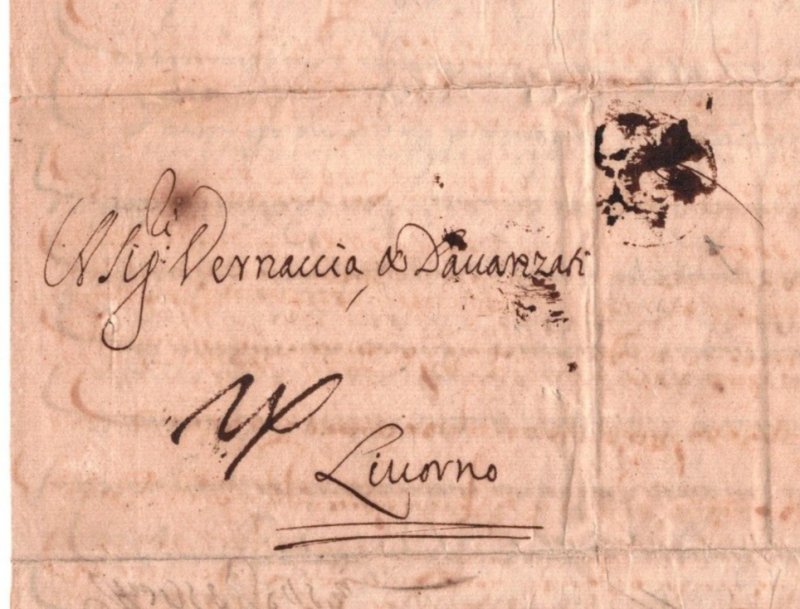 A Sig:li Vernaccia, & Dauanzati
Liuorno